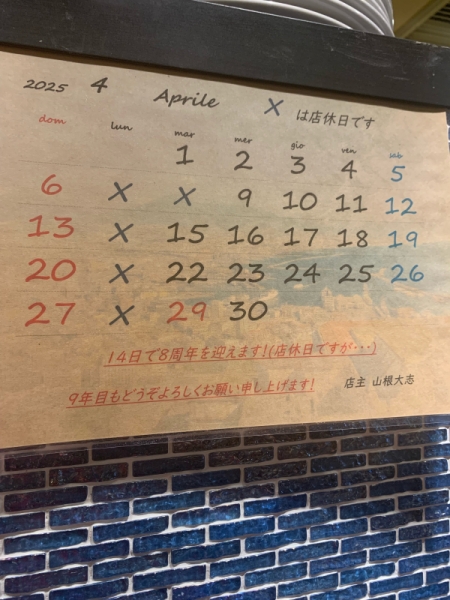 2025 4 Aprile X は店休日です
dom lun mar mer gio ven sab
1 2 3 4 5
6 X X 9 10 11 12
13 X 15 16 17 18 19
20 X 22 23 24 25 26
27 X 29 30
14日で8周年を迎えます!(店休日ですが・・・)
9年目もどうぞよろしくお願い申し上げます!
店主 山根大志